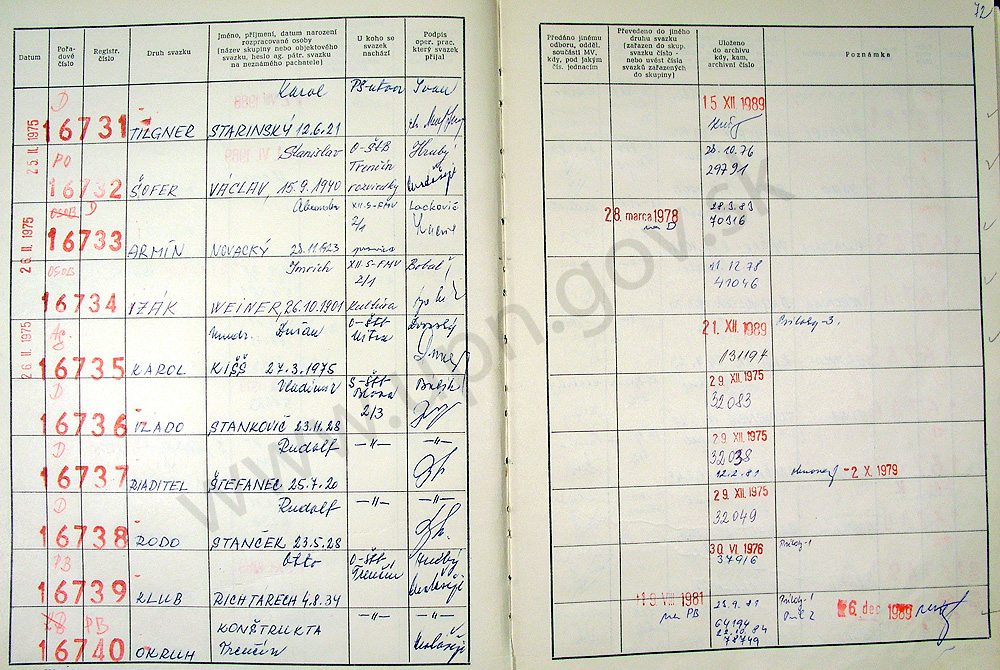 72
Datum
Pořa-
dové
číslo
Registr.
číslo
Druh svazku
Jméno, příjmení, datum narození
rozpracované osoby
[název skupiny nebo objektového
svazku, heslo ag. pátr. svazku
na neznámého pachatele]
U koho se
svazek
nachází
Podpis
oper. prac.
který svazek
přijal
Předáno jinému
odboru, odděl.
součásti MV,
kdy, pod jakým
čís. jednacím
Převedeno do jiného
druhu svazku
(zařazen do skup.
svazku číslo -
nebo uvést čísla
svazků zařazených
do skupiny]
Uloženo
do archivu
kdy, kam,
archivní číslo
Poznámka
25. II. 1975
D
16731
TILGNER
Karol
STARINSKÝ 12.6.21
Ivan
15 XII 1989
PO
16732
ŠOFER
Stanislav
VÁCLAV, 15.9.1940
O-ŠtB
Trenčín
rozviedky
Hrubý
28.10.76
29791
26 II. 1975
OSOB D
16733
ARMÍN
Alexander
NOVACKÝ 28.11.1923
XII.S-FMV
2/1
Lackovič
28. marca 1978
na D
28.3.83
70316
OSOB
16734
IZÁK
Imrich
WEINER, 26.10.1901
XII.S-FMV
2/1
Kultúra
11.12.78
41046
26 II. 1975
Ag.
16735
KAROL
Dušan
KIŠŠ 27.3.1975
O-ŠtB
Nitra
21. XII. 1989
Príloh-3.
D
16736
VLADO
Vladimír
STANKOVIČ 23.11.28
S-ŠtB
2/3
29 XII. 1975
32083
D
16737
RIADITEL
Rudolf
ŠTEFANEC 25.7.20
—"—
—"—
29 XII. 1975
32038
12.2.81
-2. X. 1979
D
16738
RODO
Rudolf
STANČEK, 23.5.28
—"—
—"—
29. XII. 1975
32049
PB
16739
KLUB
Otto
RICHTARECH 4.8.34
O-ŠtB
Trenčín
Hrubý
30. VI. 1976
37916
Príloh-1
PB
16740
OKRUH
KONŠTRUKTA
Trenčín
—"—
—"—
19 VIII 1981
na PB
23.9.81
64194
22.10.84
78749
Príloh-1
6. dec 1989
www.upn.gov.sk